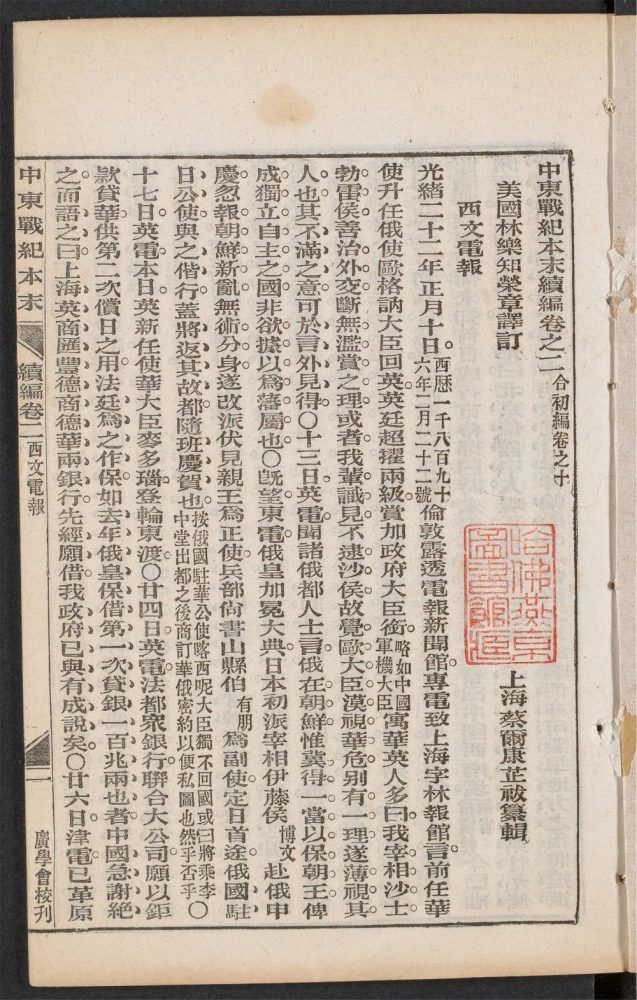 中東戰紀本末續編卷之二 合初編卷之十
美國林樂知榮章譯訂 上海蔡爾康芝紱纂輯
西文電報
光緒二十二年正月十日。西歷一千八百九十六年二月二十二號倫敦露透電報新聞館。專電致上海字林報館。言前任華
使升任俄使歐格訥大臣回英。英廷超擢兩級。賞加政府大臣銜。略如中國軍機大臣寓華英人多曰。我宰相沙士
勃雷侯善治外交。斷無濫賞之理。或者我輩識見不逮沙侯。故覺歐大臣漠視華危。別有一理。遂薄視其
人也。其不滿之意。可於言外見得。〇十三日英電。聞諸俄都人士言。俄在朝鮮。惟冀得一當以保朝王。俾
成獨立自主之國。非欲據以為藩屬也。〇旣望東電。俄皇加冕大典。日本初派宰相伊藤侯博文赴俄申
慶。忽報朝鮮新亂。無術分身。遂改派伏見親王為正使。兵部尚書山縣伯有朋為副使。定日首途。俄國駐
日公使與之偕行。蓋將返其故都。隨班慶賀也。按俄國駐華公使喀西呢大臣獨不回國或曰將乘李中堂出都之後商訂華俄密約以便私圖也然乎否乎〇
十七日英電。本日英新任使華大臣竇多瑙。登輪東渡。〇廿四日英電。法都衆銀行聯合大公司。願以鉅
款貸華。供第二次償日之用。法廷為之作保。如去年俄皇保借第一次貸銀一百兆兩也者。中國急謝絕
之。而語之曰。上海英商匯豐德商德華兩銀行。先經願借。我政府已與有成說矣。〇廿六日津電。已革原
中東戰紀本末 續編卷二 西文電報 一 廣學會校刊
哈佛燕京圖書館